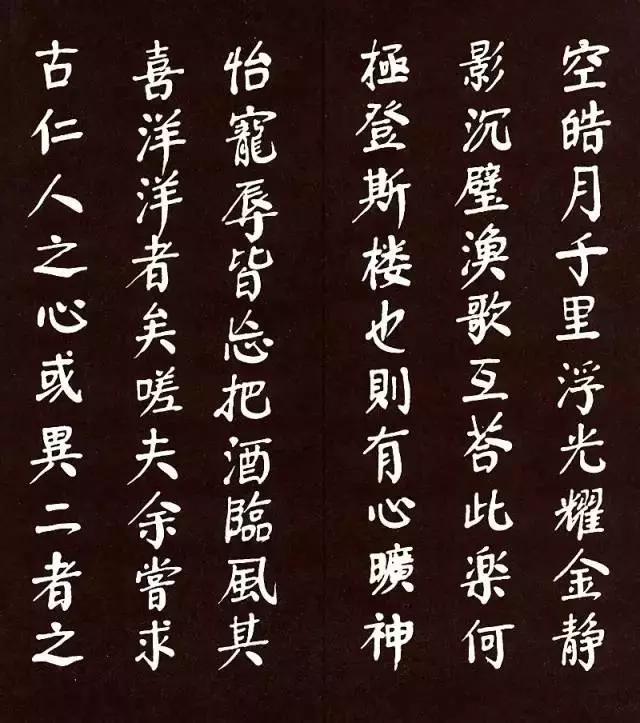 空皓月千里浮光耀金静
影沉璧渔歌互荅此楽何
極登斯楼也則有心曠神
怡寵辱皆忘把酒臨風其
喜洋洋者矣嗟夫余嘗求
古仁人之心或異二者之